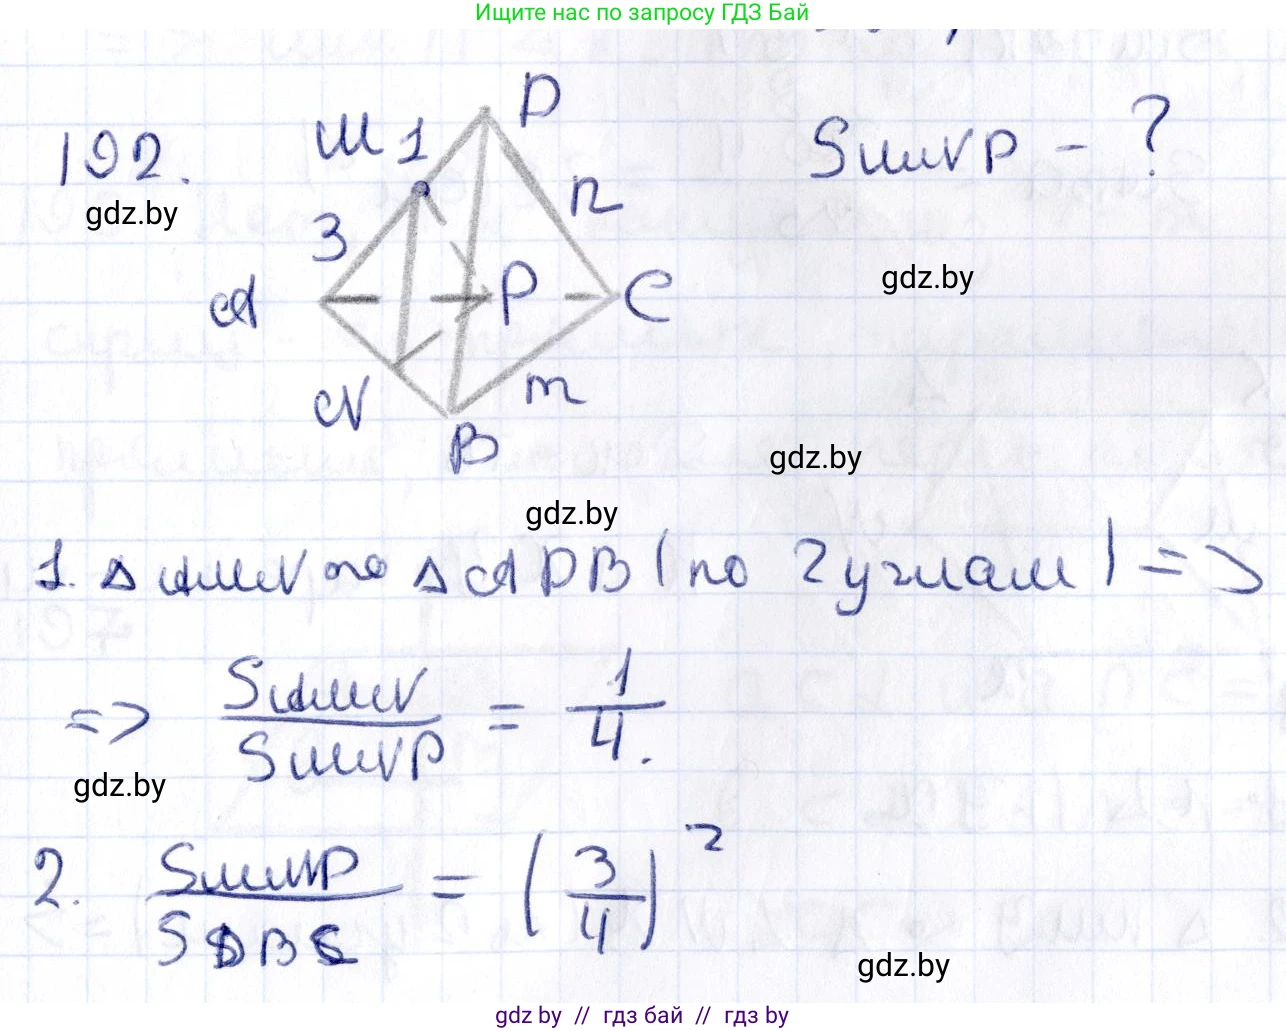 Ищите нас по запросу ГДЗ Бай
192.
M 1 D
SMNP - ?
gdz.by
3 n
gdz.by
A P C
N m
B
gdz.by
gdz.by
1. Δ AMN ∾ Δ ADB (по 2 углам) =>
=> SAMN / SMNP = 1/4.
gdz.by
2. SMNP / SDBC = (3/4)²
gdz.by
gdz by // гдз бай // гдз by